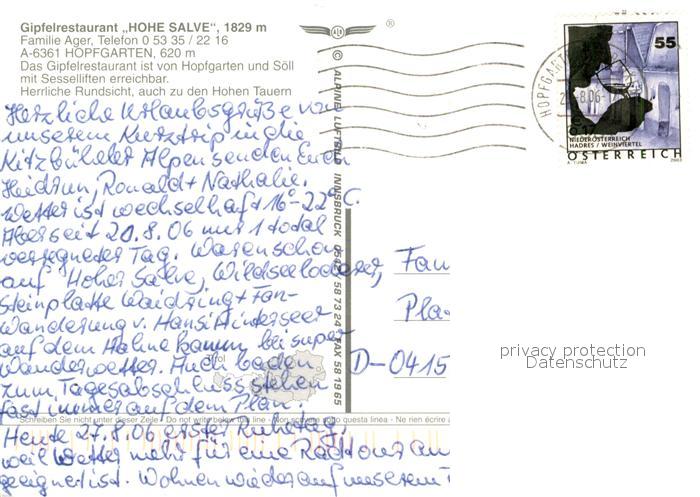 Gipfelrestaurant „HOHE SALVE“, 1829 m
Familie Ager, Telefon 0 53 35 / 22 16
A-6361 HOPFGARTEN, 620 m
Das Gipfelrestaurant ist von Hopfgarten und Söll
mit Sesselliften erreichbar.
Herrliche Rundsicht, auch zu den Hohen Tauern
Herzliche Urlaubsgrüße von
unserem Kurztrip in die
Kitzbühler Alpen senden Euch
Heidrun, Ronald + Nathalie.
Wetter ist wechselhaft 16°-22°C.
Aber seit 20.8.06 nur 1 total
verregneter Tag. Waren schon
auf Hoher Salve, Wildseeloderer,
Steinplatte Waidring + Fan-
Wanderung v. Hansi Hinterseer
auf dem Hahnekamm bei super
Wanderwetter. Auch baden
zum Tagesabschluss stehen
fast immer auf dem Plan.
Heute 27.8.06 erster Ruhetag,
weil Wetter mehr für eine Radtour
geeignet ist. Wohnen wieder auf unserem
© ALPINE LUFTBILD INNSBRUCK 58 73 24 FAX 58 19 65
®
Tirol
Schreiben Sie nicht unter dieser Zeile - Do not write below the line - Non scrivere sotto questa linea - Ne rien écrire
HOPFGARTEN
8.06
55
NIEDERÖSTERREICH
HADRES / WEINVIERTEL
ÖSTERREICH
Fam
Pla
D-0415
privacy protection
Datenschutz